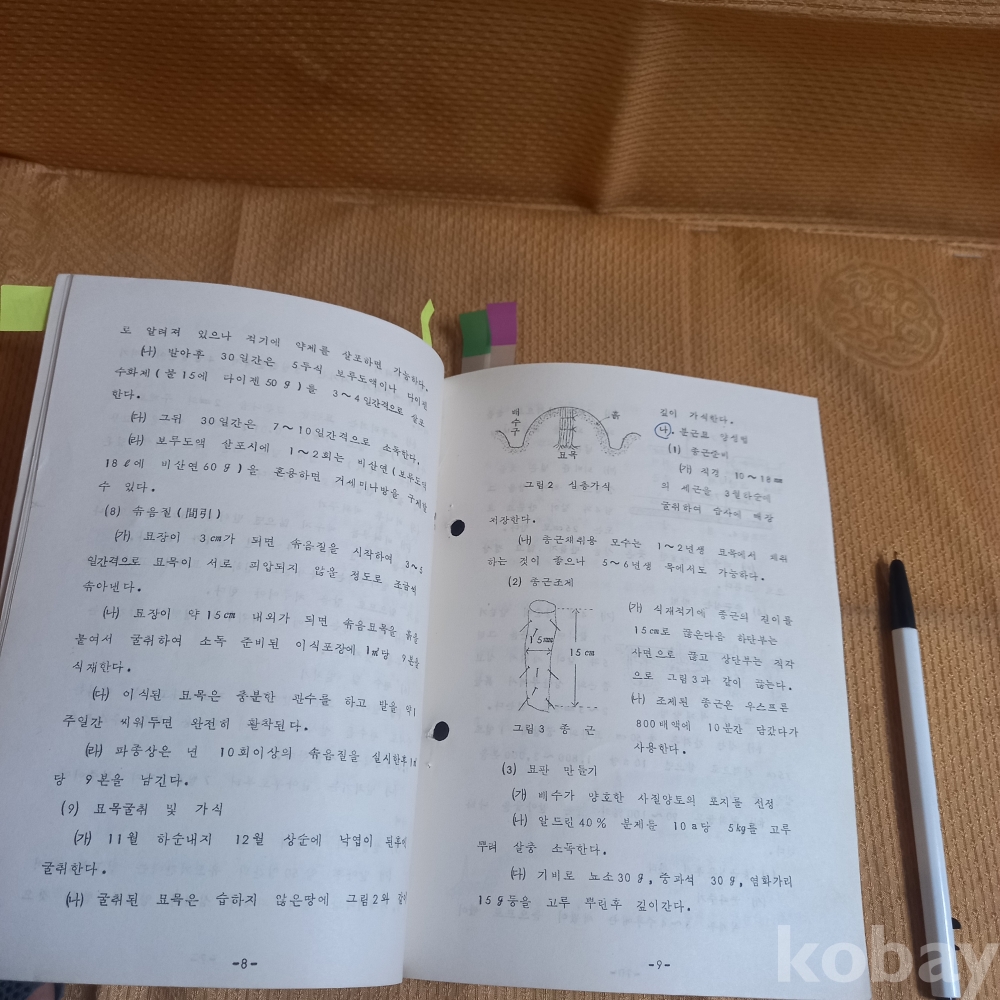 로 알려져 있으나 적기에 약제를 살포하면 가능하다.
(나) 발아후 30일간은 5두식 보루도액이나 다이젠
수화제(물 15에 다이젠 50g)를 3~4일간격으로 살포
한다.
(다) 그뒤 30일간은 7~10일간격으로 소독한다.
(라) 보루도액 살포시에 1~2회는 비산연(보루도액
18ℓ에 비산연 60g)을 혼용하면 거세미나방을 구제할
수 있다.
(8) 솎음질(間引)
(가) 묘장이 3cm가 되면 솎음질을 시작하여 3~5
일간격으로 묘목이 서로 피압되지 않을 정도로 조금씩
솎아낸다.
(나) 묘장이 약 15cm 내외가 되면 솎음묘목을 흙을
붙여서 굴취하여 소독 준비된 이식포장에 1㎡당 9본을
식재한다.
(다) 이식된 묘목은 충분한 관수를 하고 발을 약1
주일간 씌워두면 완전히 활착된다.
(라) 파종상은 년 10회이상의 솎음질을 실시한후 1㎡
당 9본을 남긴다.
(9) 묘목굴취 및 가식
(가) 11월 하순내지 12월 상순에 낙엽이 된후에
굴취한다.
(나) 굴취된 묘목은 습하지 않은땅에 그림2와 같이
-8-
배수구
흙
묘목
그림2 심층가식
깊이 가식한다.
나. 분근묘 양성법
(1) 종근준비
(가) 직경 10~18㎜
의 세근을 3월하순에
굴취하여 습사에 매장
저장한다.
(나) 종근채취용 모수는 1~2년생 묘목에서 채취
하는 것이 좋으나 5~6년생 목에서도 가능하다.
(2) 종근조제
15㎜
15cm
그림3 종 근
(가) 식재적기에 종근의 길이를
15cm로 끊은다음 하단부는
사면으로 끊고 상단부는 직각
으로 그림3과 같이 끊는다.
(나) 조제된 종근은 우스프론
800배액에 10분간 담갔다가
사용한다.
(3) 묘판 만들기
(가) 배수가 양호한 사질양토의 포지를 선정
(나) 알드린 40% 분제를 10a당 5kg를 고루
뿌려 살충 소독한다.
(다) 기비로 뇨소30g, 중과석 30g, 염화가리
15g등을 고루 뿌린후 깊이간다.
-9-
kobay